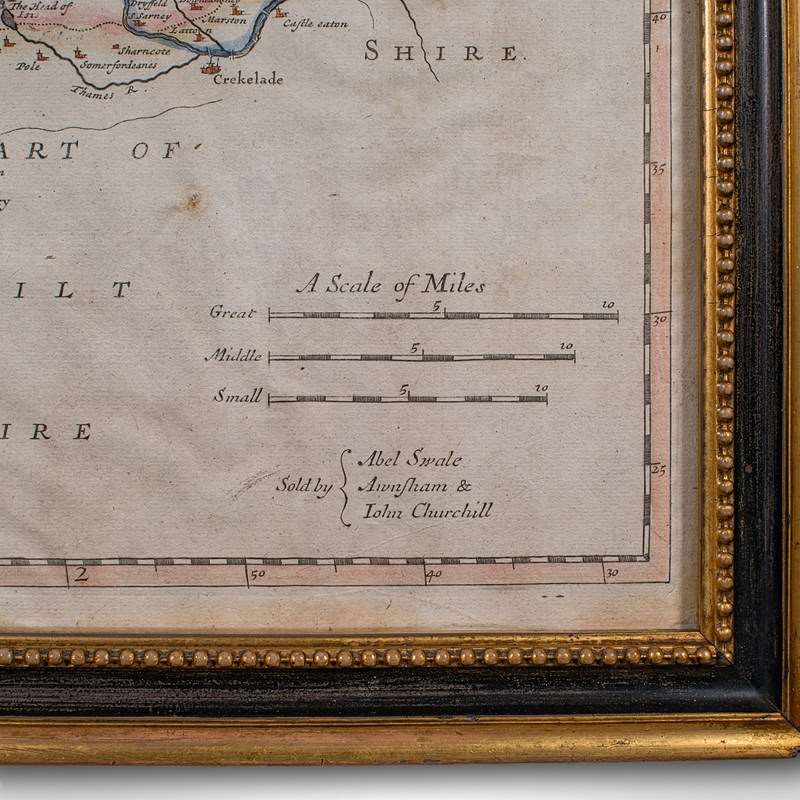 The Head of
Isis
Dryffeld
S. Sarney
Harston
Latton
Castle eaton
40
Sharncote
Pole
Somerfordeanes
Crekelade
SHIRE.
Thames R.
ART OF
35
ILT
A Scale of Miles
Great 5 10
30
Middle 5 10
Small 5 10
IRE
Sold by
Abel Swale
Awnsham &
Iohn Churchill
25
2 50 40 30